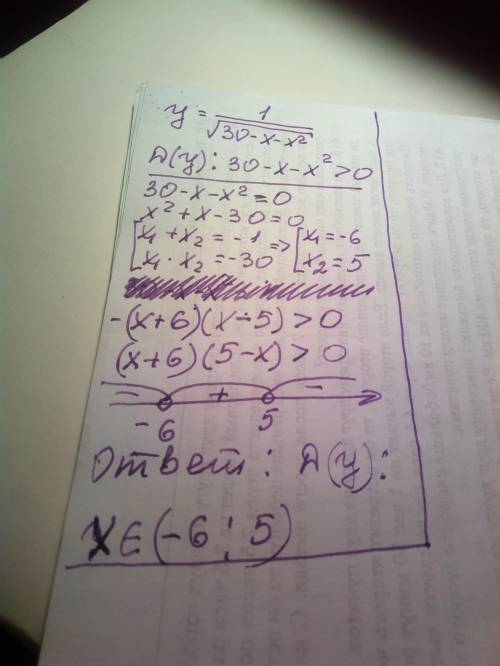 y = 1/√(30-x-x²)
D(y): 30-x-x²>0
30-x-x²=0
x²+x-30=0
[x₁+x₂=-1 => [x₁=-6
[x₁·x₂=-30 [x₂=5
-(x+6)(x-5)>0
(x+6)(5-x)>0
- + -
-6 5
Ответ: D(y):
x∈(-6;5)